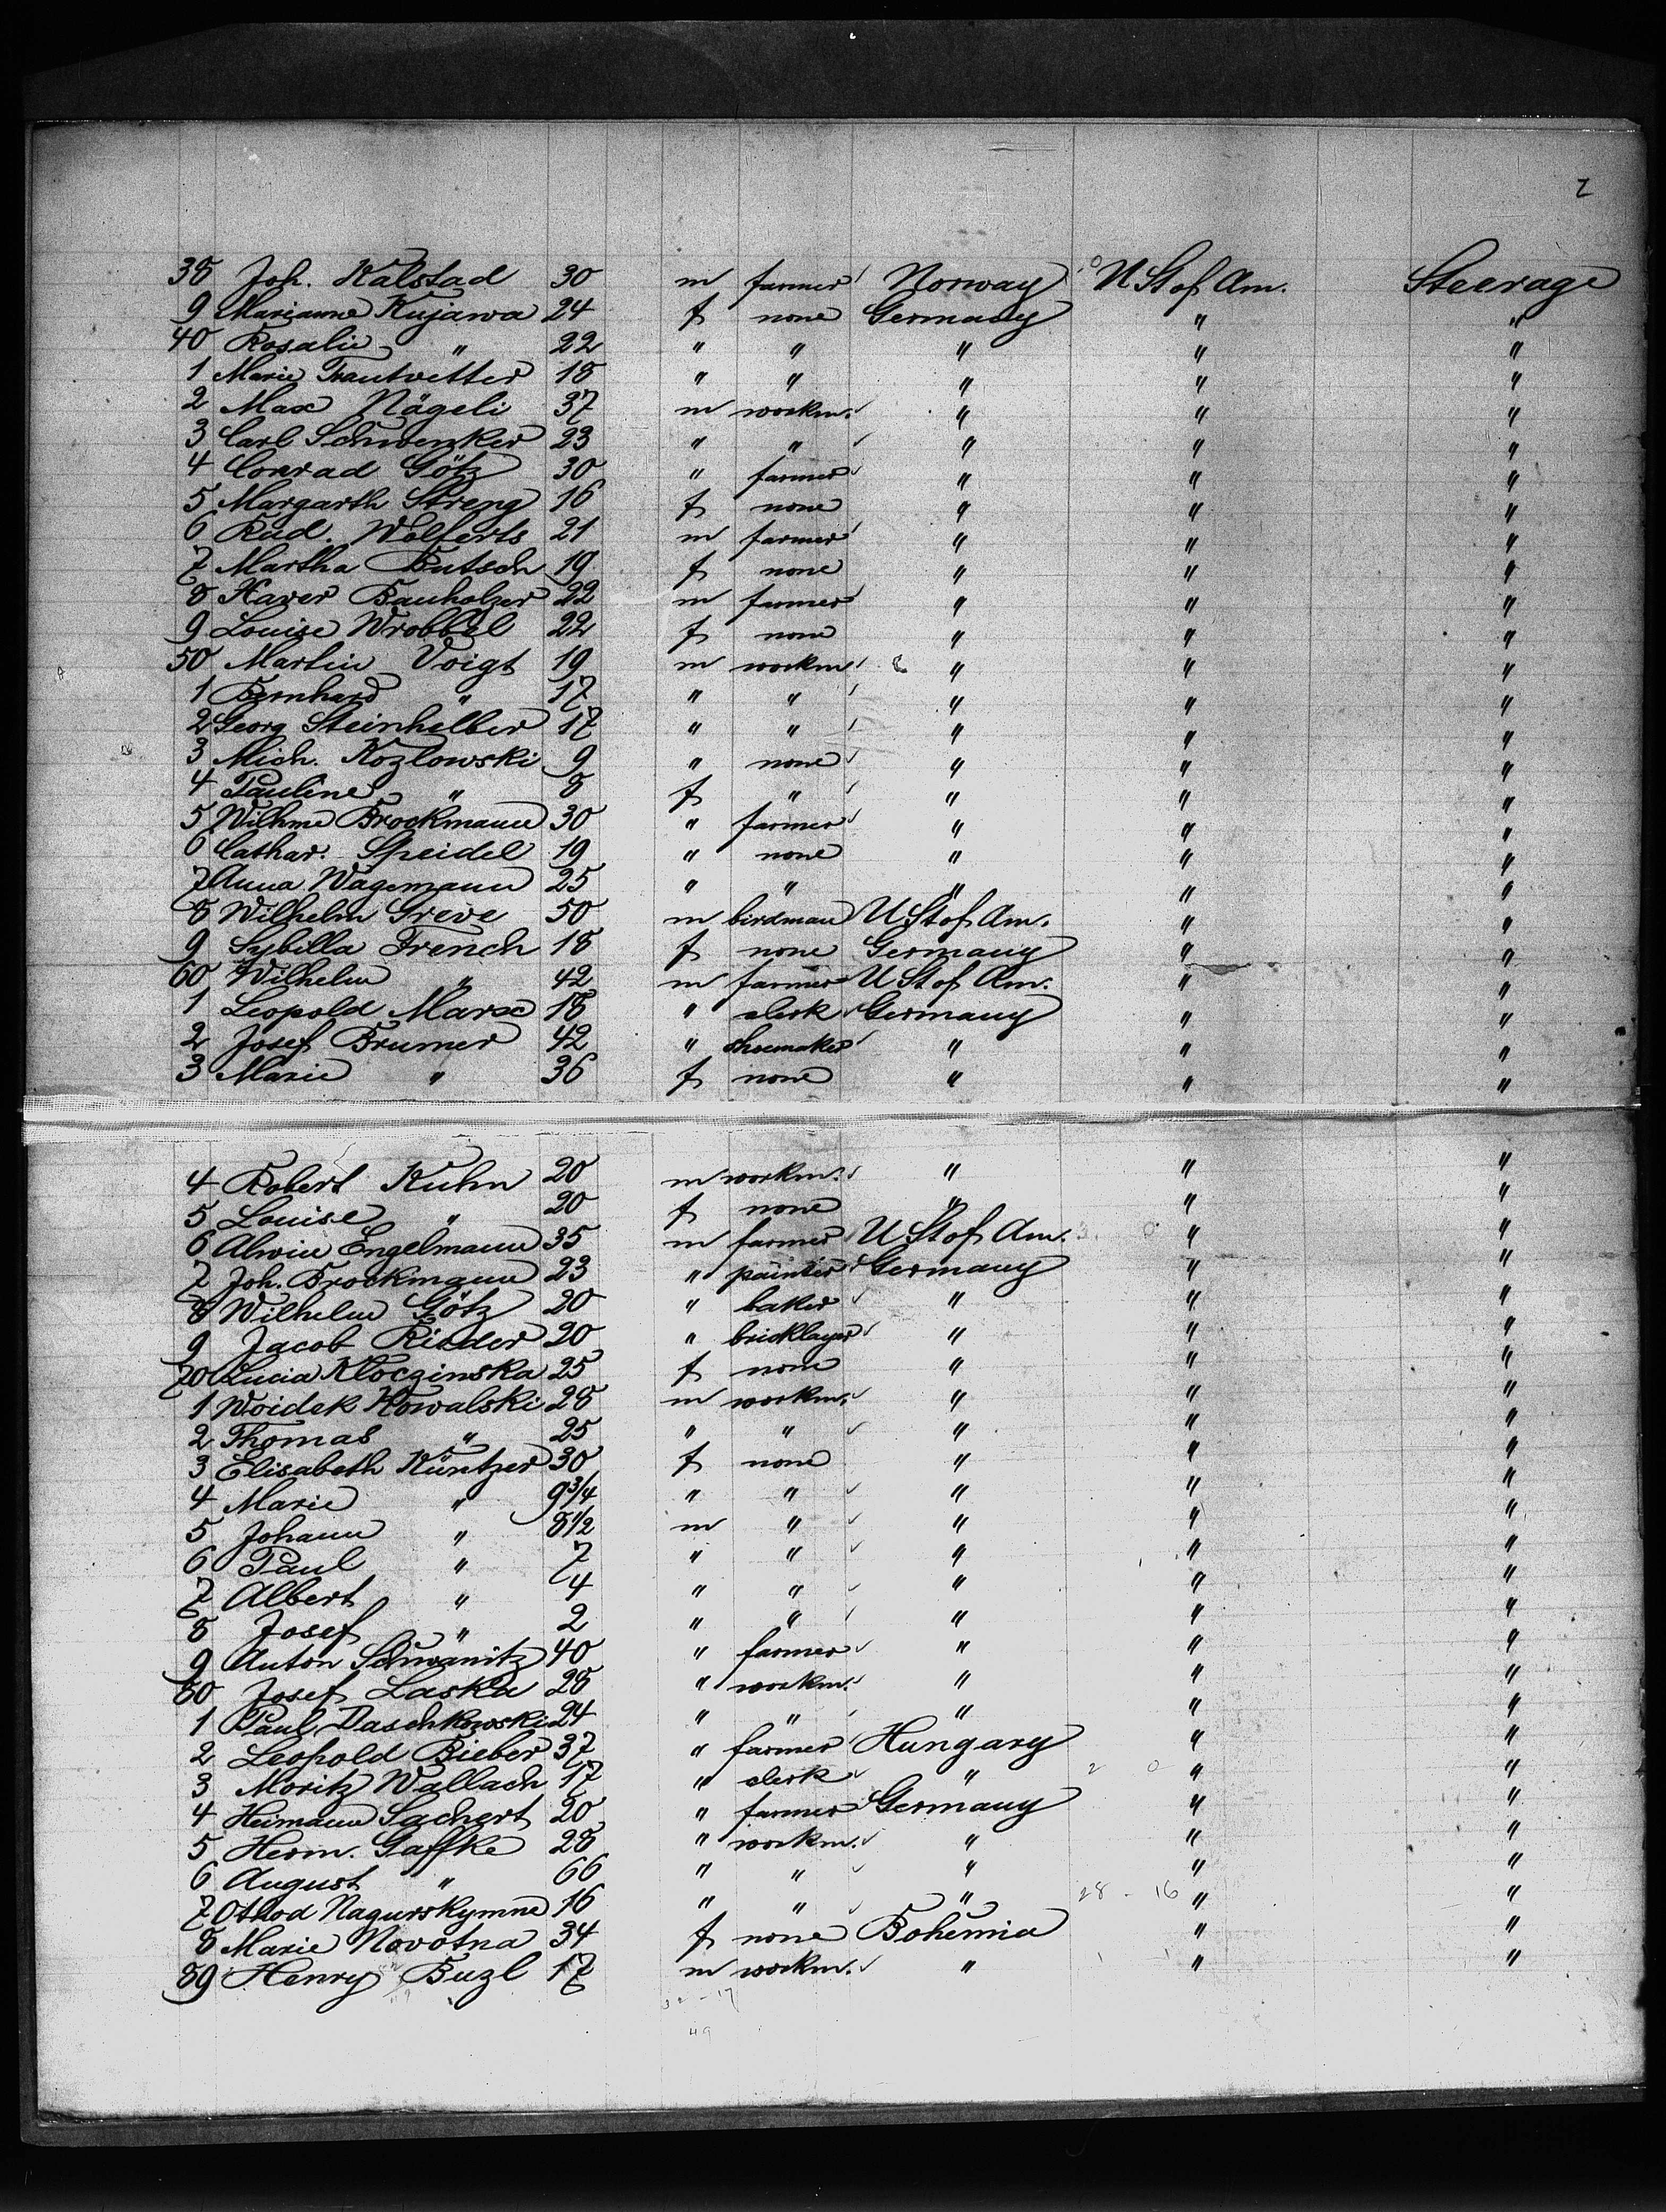 2
38 Joh. Kalstad 30 m farmer Norway U St of Am. Steerage
9 Marianne Kujawa 24 f none Germany " "
40 Rosalie " 22 " " " " "
1 Marie Trautvetter 18 " " " " "
2 Max Nägeli 37 m workm. " " "
3 Carl Schwenker 23 " " " " "
4 Conrad Götz 30 " farmer " " "
5 Margarth Streng 16 f none " " "
6 Rud. Wolferts 21 m farmer " " "
7 Martha Butsch 19 f none " " "
8 Xaver Bauholzer 22 m farmer " " "
9 Louise Wrobbel 22 f none " " "
50 Martin Voigt 19 m workm " " "
1 Bernhard " 17 " " " " "
2 Georg Steinhelber 17 " " " " "
3 Mich. Kozlowski 9 " none " " "
4 Pauline " 8 f " " " "
5 Wilhme Brockmann 30 " farmer " " "
6 Cathar. Speidel 19 " none " " "
7 Anna Wagemann 25 " " " " "
8 Wilhelm Greve 50 m birdman U St of Am. " "
9 Sybilla French 18 f none Germany " "
60 Wilhelm " 42 m farmer U St of Am. " "
1 Leopold Marx 18 " clerk Germany " "
2 Josef Brumer 42 " shoemaker " " "
3 Marie " 36 f none " " "
4 Robert Kuhn 20 m workm. " " "
5 Louise " 20 f none " " "
6 Alwin Engelmann 35 m farmer U St of Am. " "
7 Joh. Brockmann 23 " painter Germany " "
8 Wilhelm Götz 20 " baker " " "
9 Jacob Rieder 20 " bricklayer " " "
70 Lucia Kloczinska 25 f none " " "
1 Woidek Kowalski 28 m workm. " " "
2 Thomas " 25 " " " " "
3 Elisabeth Küntzer 30 f none " " "
4 Marie " 9 3/4 " " " " "
5 Johann " 8 1/2 m " " " "
6 Paul " 7 " " " " "
7 Albert " 4 " " " " "
8 Josef " 2 " " " " "
9 Anton Schwanitz 40 " farmer " " "
80 Josef Laska 28 " workm. " " "
1 Paul Daschkowski 24 " " " " "
2 Leopold Bieber 37 " farmer Hungary " "
3 Moritz Wallach 17 " clerk " " "
4 Heimann Sachert 20 " farmer Germany " "
5 Herm. Gaffke 28 " workm. " " "
6 August " 66 " " " " "
7 Nagurskymne 16 " " " 28 - 16 " "
8 Marie Novotna 34 f none Bohemia " "
89 Henry Buzl 17 m workm. " " "